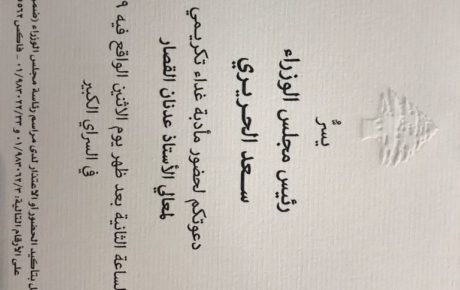 يسُّر
رئيس مجلس الوزراء
سعد الحريري
دعوتكم لحضور مأدبة غداء تكريمي
لمعالي الأستاذ عدنان القصار
لساعة الثانية بعد ظهر يوم الاثنين الواقع فيه ٩
في السراي الكبير
بتأكيد الحضور او الاعتذار لدى مراسم رئاسة مجلس الوزراء
على الأرقام التالية: ٠١/٩٨٣٠١٢/٣ و ٠١/٩٨٣٠٢٢/٢٣ - فاكس